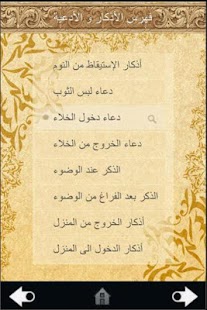 فهرس الأذكار و الأدعية
أذكار الإستيقاط من النوم
دعاء لبس الثوب
دعاء دخول الخلاء
دعاء الخروج من الخلاء
الذكر عند الوضوء
الذكر بعد الفراغ من الوضوء
أذكار الخروج من المنزل
أذكار الدخول الى المنزل